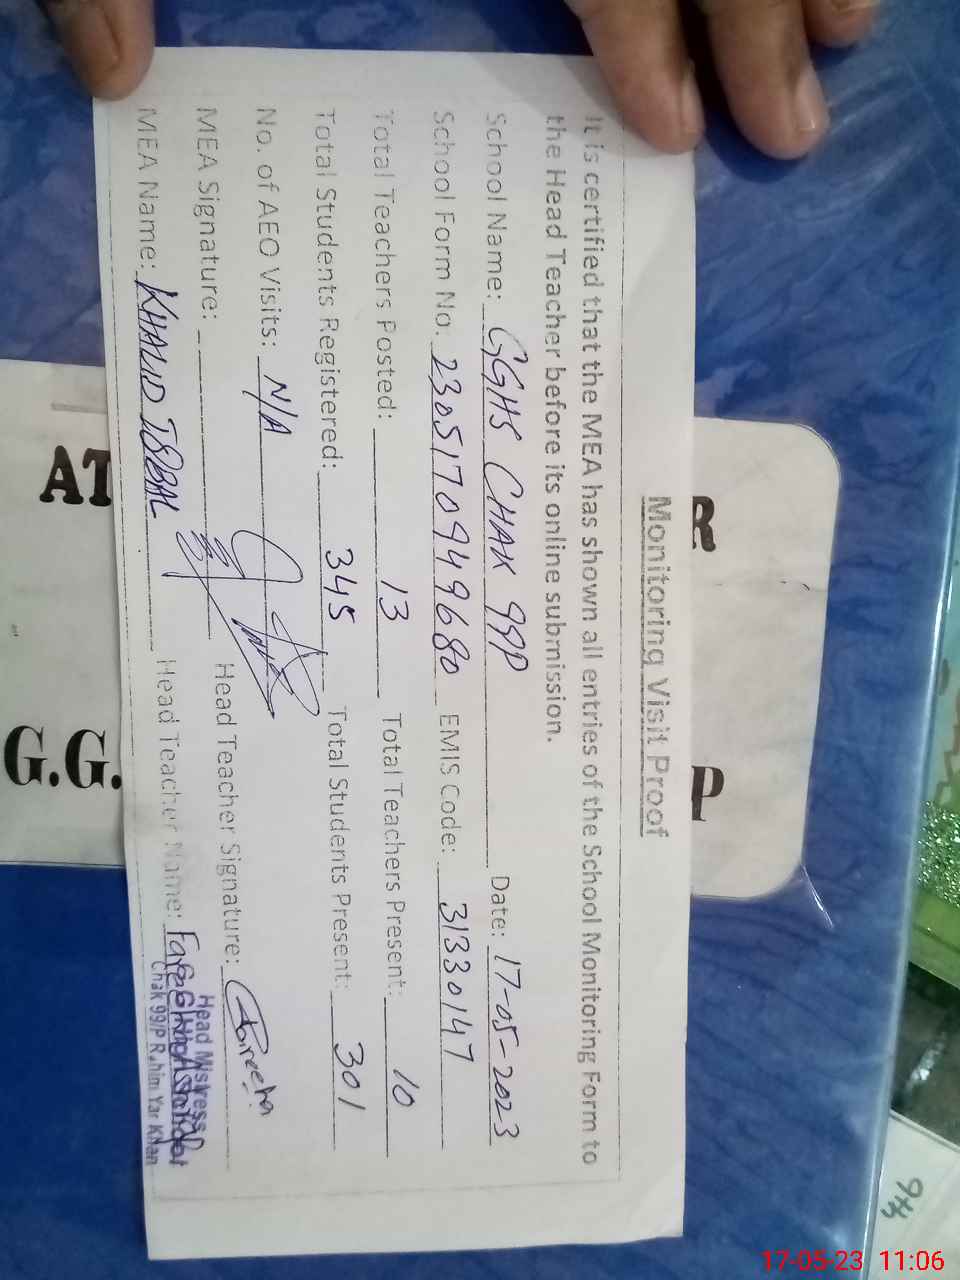 Monitoring Visit Proof
It is certified that the MEA has shown all entries of the School Monitoring Form to
the Head Teacher before its online submission.
School Name: GGHS CHAK 99P Date: 17-05-2023
School Form No. 23051709949680 EMIS Code: 31330147
Total Teachers Posted: 13 Total Teachers Present: 10
Total Students Registered: 345 Total Students Present: 301
No. of AEO Visits: N/A
MEA Signature: Head Teacher Signature:
MEA Name: KHALID IQBAL Head Teacher Name:
Head Mistress
Chak 99/P Rahim Yar Khan
AT
R
G.G.
P
17-05-23 11:06